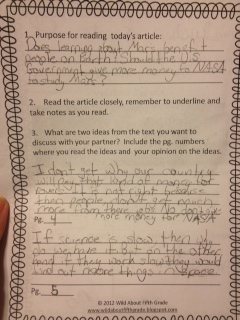 1. Purpose for reading today's article:
Does learning about Mars benefit
people on Earth? Should the U.S
Government give more money to NASA
to study Mars?
2. Read the article closely, remember to underline and
take notes as you read.
3. What are two ideas from the text you want to
discuss with your partner? Include the pg. numbers
where you read the ideas and your opinion on the ideas.
I don't get why our country
will pay that kind of money for
balance
then people don't get much
more from there
Pg. 4 more money for NASA
If science is slow then why
do we have to do on the other
and if they work slow they would
find out more things in space.
Pg. 5
© 2012 Wild About Fifth Grade
www.wildaboutfifthgrade.blogspot.com